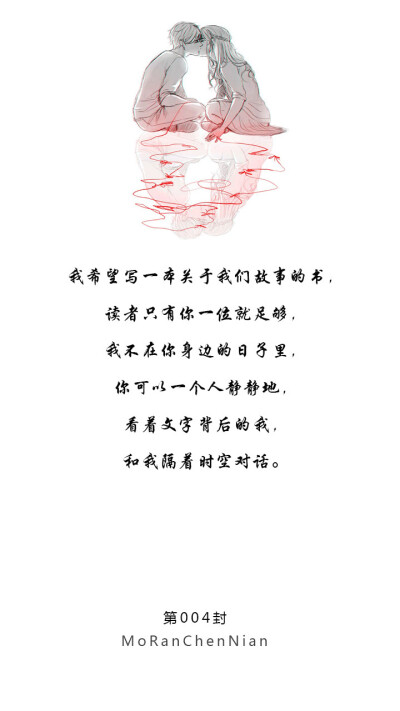 我希望写一本关于我们故事的书，
读者只有你一位就足够，
我不在你身边的日子里，
你可以一个人静静地，
看着文字背后的我，
和我隔着时空对话。
第004封
MoRanChenNian